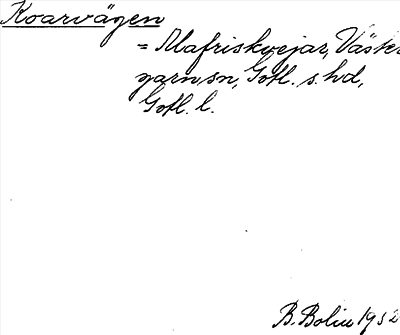 Koarvägen
= Mafriskvejar, Väster
garn sn, Gotl. s. hd,
Gotl. l.
B. Bolin 1952